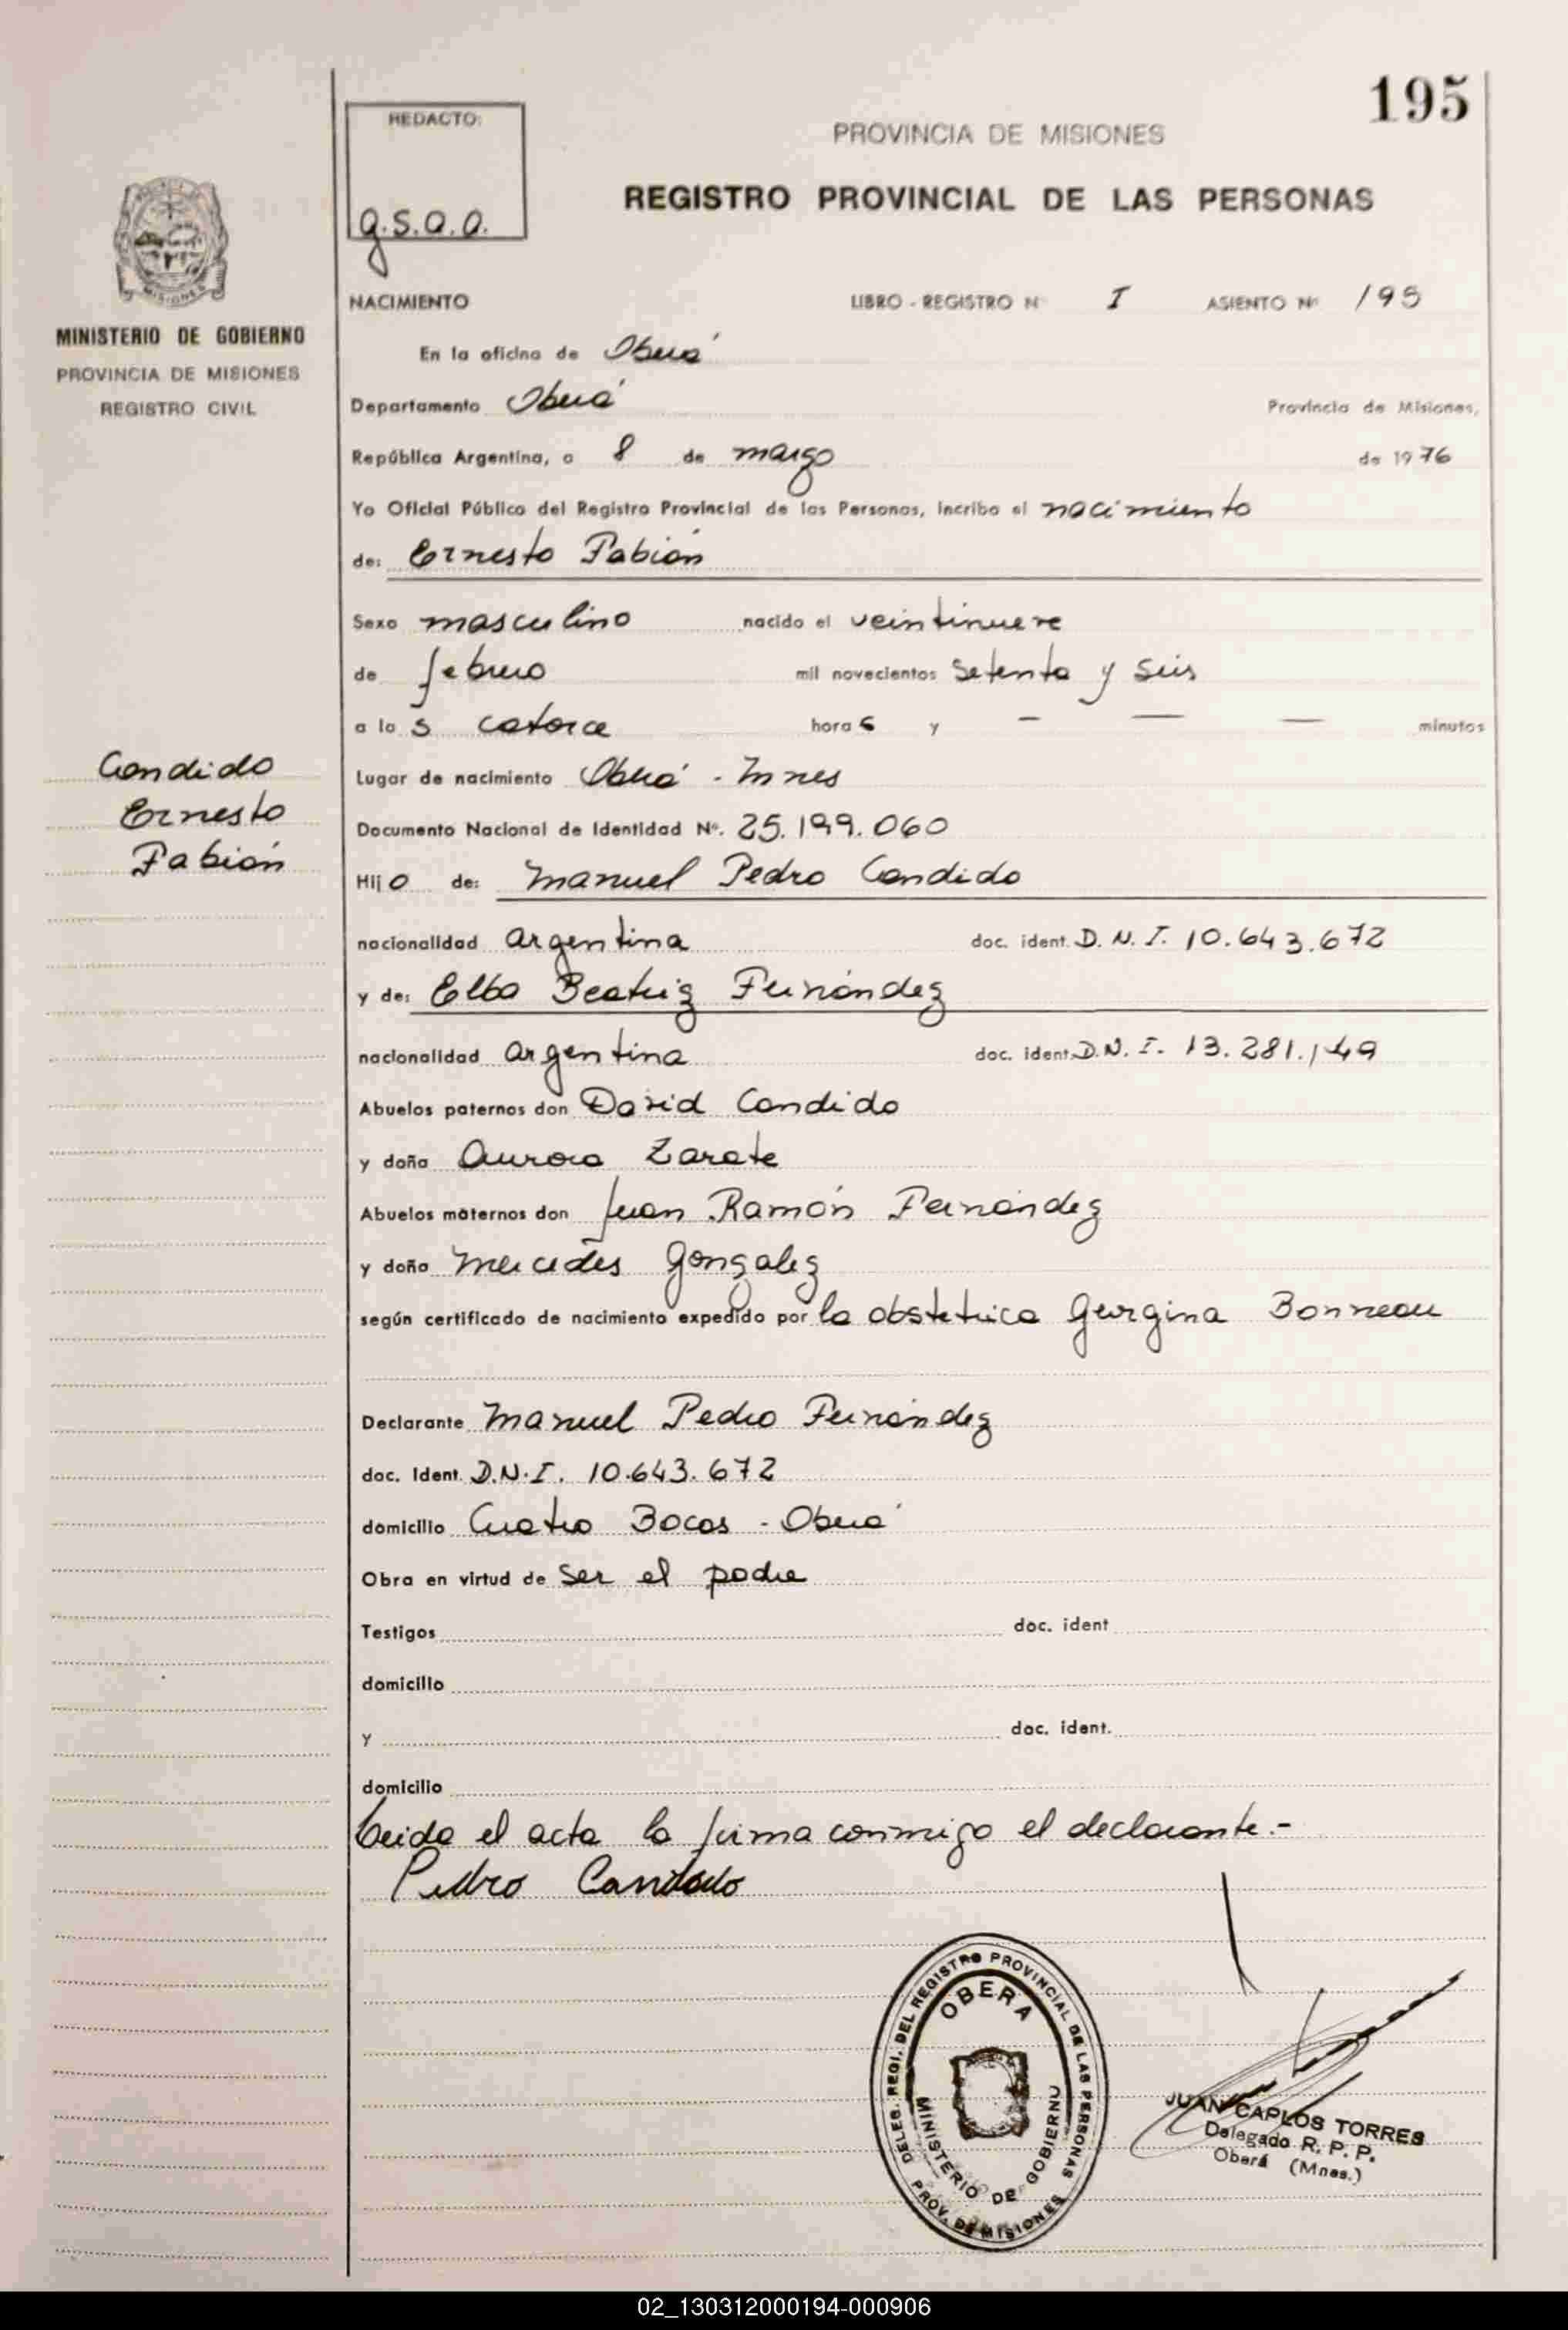 195
REDACTO:
g.s.a.a.
PROVINCIA DE MISIONES
REGISTRO PROVINCIAL DE LAS PERSONAS
MISIONES
MINISTERIO DE GOBIERNO
PROVINCIA DE MISIONES
REGISTRO CIVIL
NACIMIENTO LIBRO - REGISTRO Nº I ASIENTO Nº 195
En la oficina de Oberá
Departamento Oberá Provincia de Misiones,
República Argentina, a 8 de marzo de 1976
Yo Oficial Público del Registro Provincial de las Personas, incribo el nacimiento
de: Ernesto Fabián
Sexo masculino nacido el veintinueve
de febrero mil novecientos setenta y seis
a la s catorce hora s y — — — minutos
Candido
Ernesto
Fabián
Lugar de nacimiento Oberá - Mnes
Documento Nacional de Identidad Nº. 25.199.060
Hij o de: Manuel Pedro Candido
nacionalidad argentina doc. ident. D.N.I. 10.643.672
y de: Elba Beatriz Fernández
nacionalidad argentina doc. ident. D.N.I. 13.281.149
Abuelos paternos don David Candido
y doña Aurora Zarate
Abuelos maternos don Juan Ramón Fernández
y doña Mercedes Gonzalez
según certificado de nacimiento expedido por la obstetrica Georgina Bonneau
Declarante Manuel Pedro Fernández
doc. Ident. D.N.I. 10.643.672
domicilio Cuatro Bocas - Oberá
Obra en virtud de ser el padre
Testigos doc. ident
domicilio
y doc. ident.
domicilio
Leida el acta la firma conmigo el declarante.-
Pedro Candido
DELEG. REGI. DEL REGISTRO PROVINCIAL DE LAS PERSONAS
OBERA
MINISTERIO DE GOBIERNO
PROV. DE MISIONES
JUAN CARLOS TORRES
Delegado R. P. P.
Oberá (Mnes.)
02_130312000194-000906